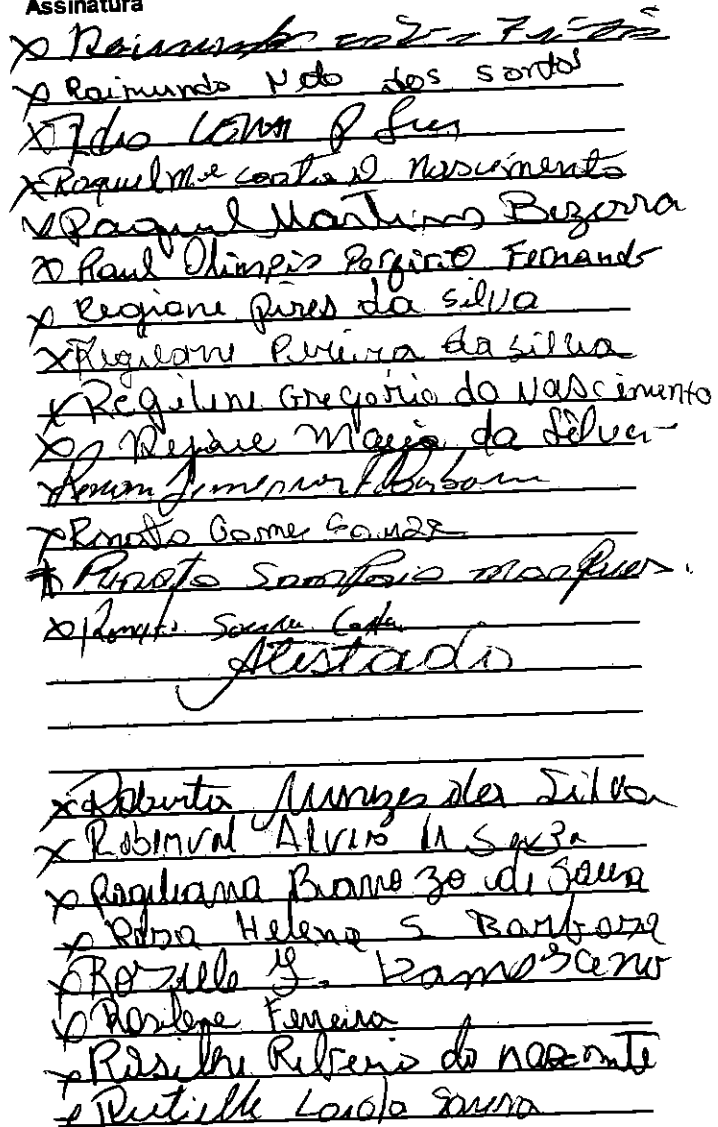 Assinatura
x Raimundo
x Raimundo Neto dos santos
x
x Raquel Mª costa d nascimento
x Raquel Martins Bezerra
x Raul Olimpio Porfirio Fernando
x Regiane Pires da silva
x Regilane Pereira da silva
x Regilene Gregório do Nascimento
x Rejane Maria da Silva
x Renan
x Renato Gome Souza
x Renato Sampaio marques.
x Renato Sousa Costa
Atestado
x Roberta Menezes da Silva
x Robinval Alves
x Rogiliana Barrozo de Sousa
x Rosa Helena S Barbosa
x Rozille G. Damasceno
x Rosilene Ferreira
x Rosilene Ribeiro do
x Rutielle Loiola Sousa